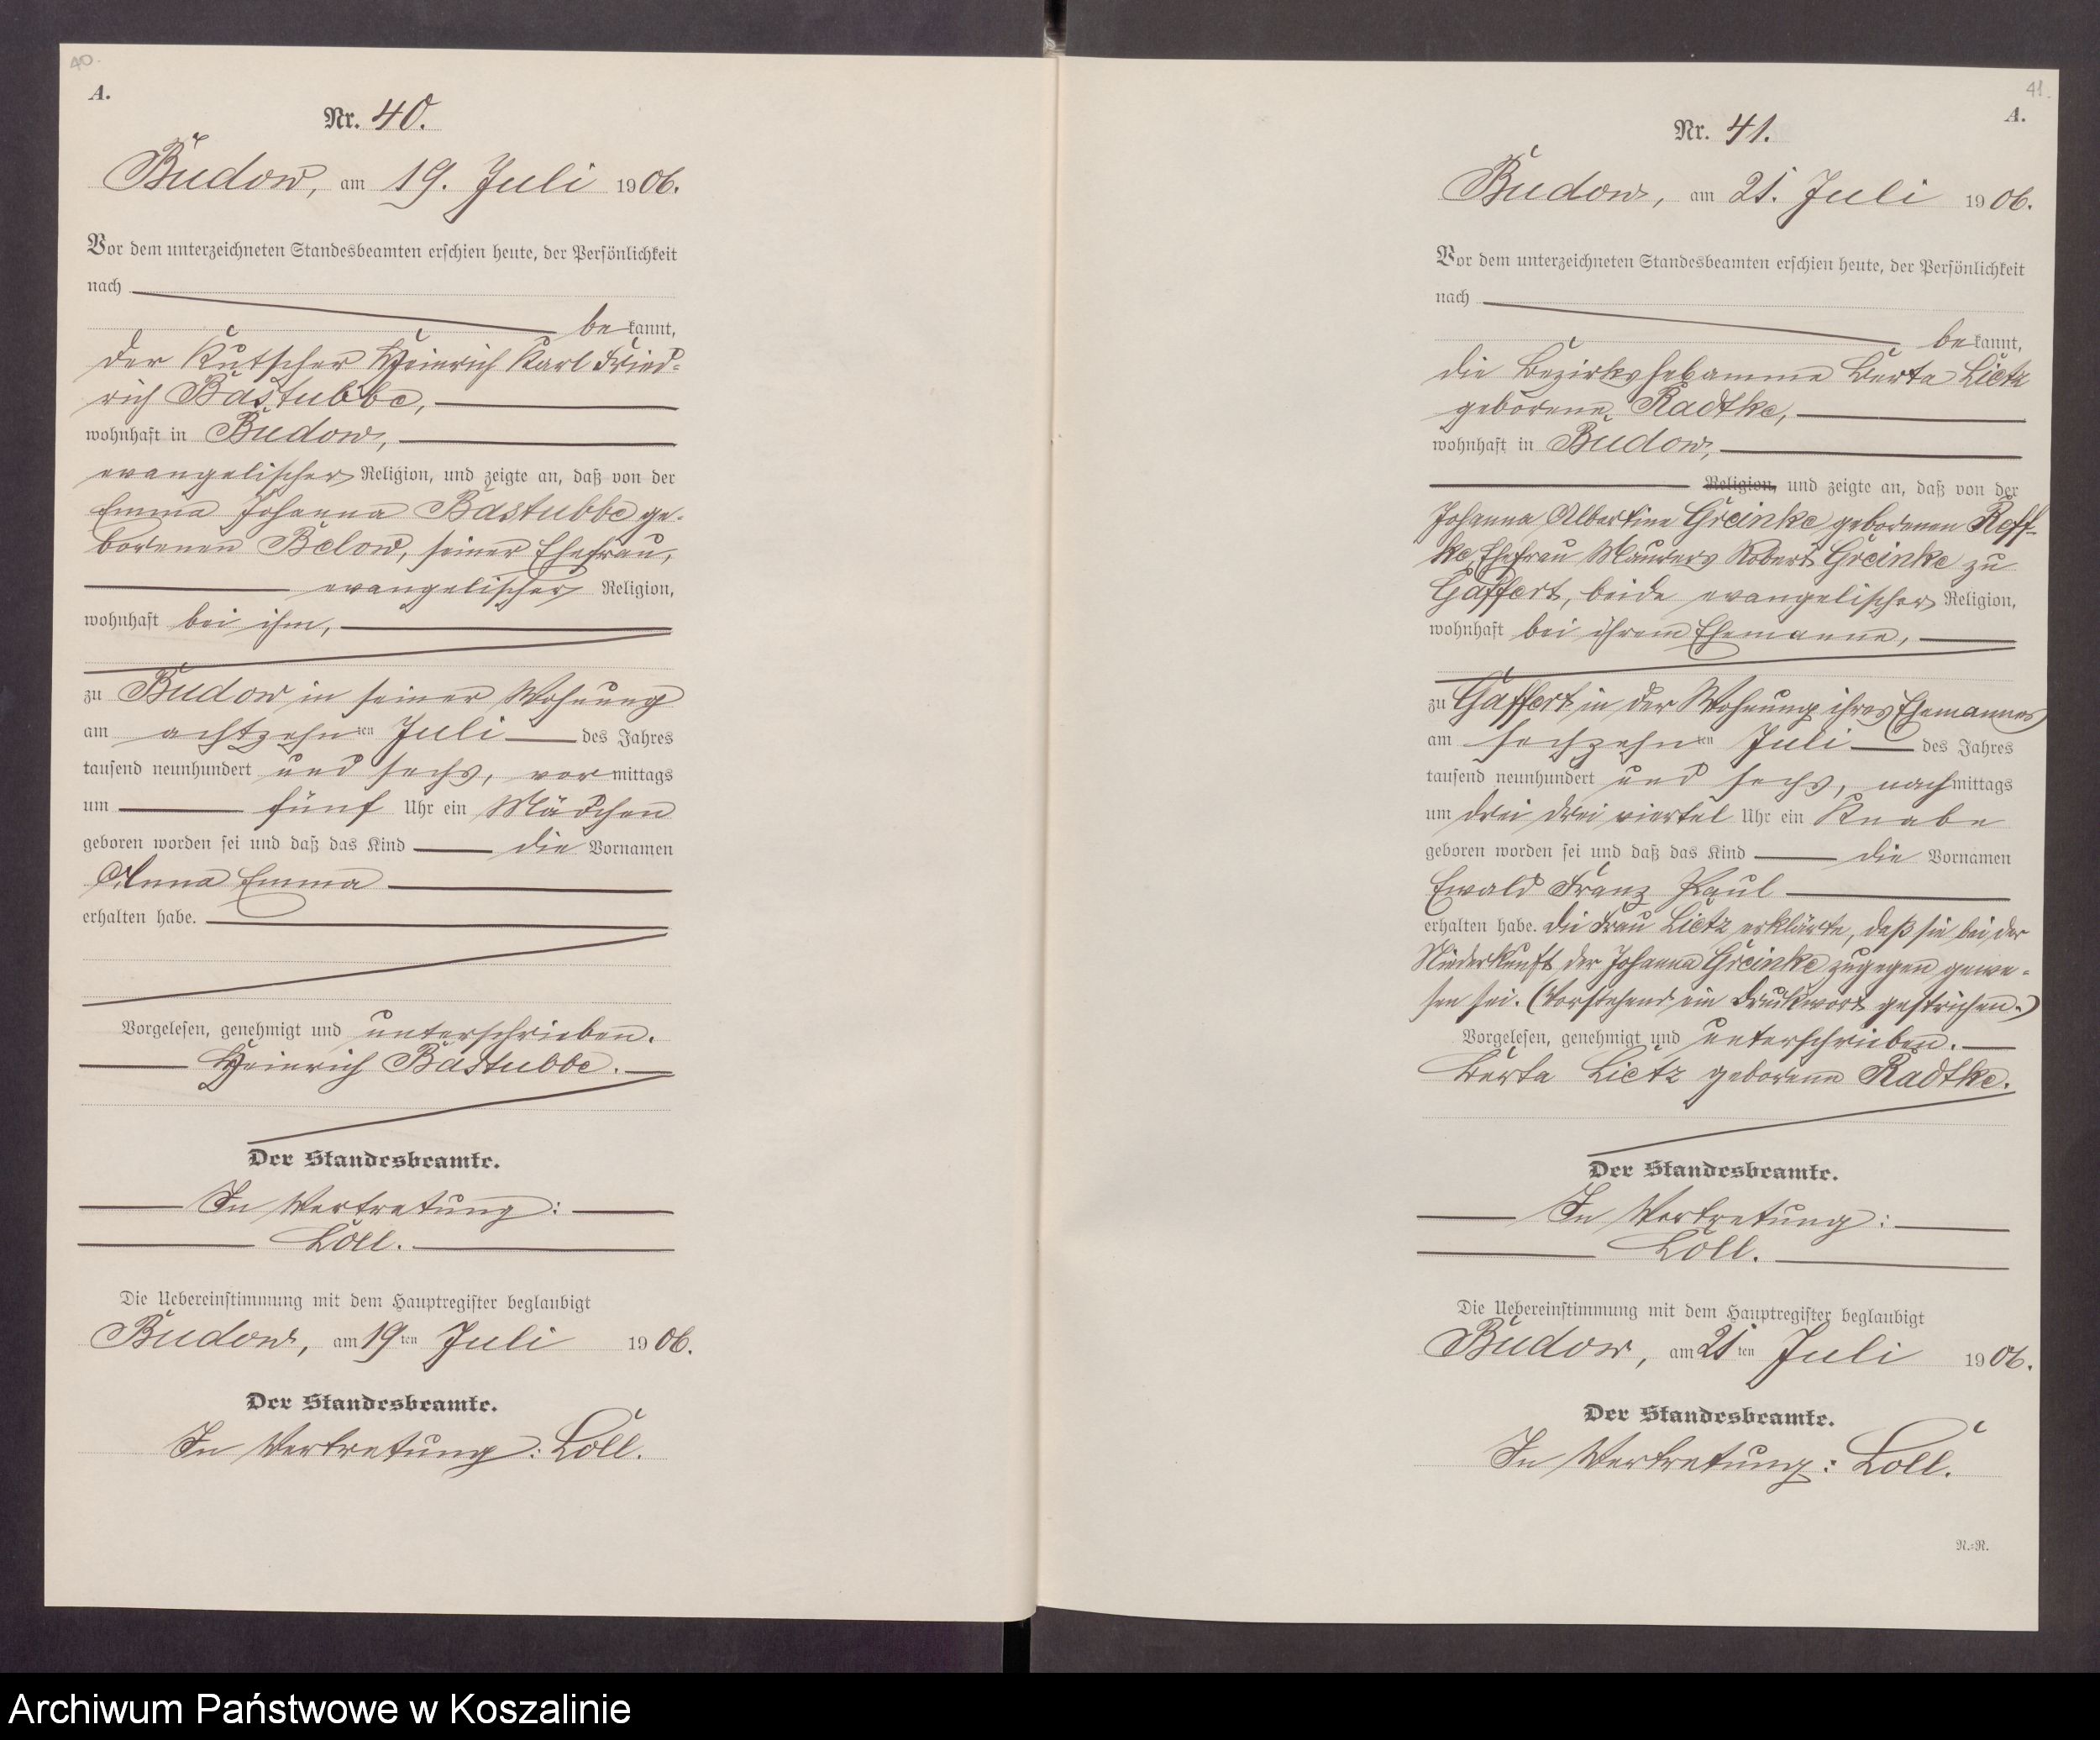 40.
A.
Nr. 40.
Budow, am 19. Juli 1906.
Vor dem unterzeichneten Standesbeamten erschien heute, der Persönlichkeit
nach
be kannt,
der Kutscher Heinrich Karl Fried-
rich Bastubbe,
wohnhaft in Budow,
evangelischer Religion, und zeigte an, daß von der
Emma Johanna Bastubbe ge-
borenen Below, seiner Ehefrau,
evangelischer Religion,
wohnhaft bei ihm,
zu Budow in seiner Wohnung
am achtzehn ten Juli des Jahres
tausend neunhundert und sechs, vor mittags
um fünf Uhr ein Mädchen
geboren worden sei und daß das Kind die Vornamen
Anna Emma
erhalten habe.
Vorgelesen, genehmigt und unterschrieben.
Heinrich Bastubbe.
Der Standesbeamte.
In Vertretung:
Loll.
Die Uebereinstimmung mit dem Hauptregister beglaubigt
Budow, am 19 ten Juli 1906.
Der Standesbeamte.
In Vertretung: Loll.
41.
A.
Nr. 41.
Budow, am 21. Juli 1906.
Vor dem unterzeichneten Standesbeamten erschien heute, der Persönlichkeit
nach
be kannt,
die Bezirkshebamme Berta Lietz
geborene Radtke,
wohnhaft in Budow,
Religion, und zeigte an, daß von der
Johanna Albertine Greinke geborenen Roff-
ke, Ehefrau Maurers Robert Greinke zu
Gaffert, beide evangelischer Religion,
wohnhaft bei ihrem Ehemanne,
zu Gaffert in der Wohnung ihres Ehemannes
am sechzehn ten Juli des Jahres
tausend neunhundert und sechs, nach mittags
um drei drei viertel Uhr ein Knabe
geboren worden sei und daß das Kind die Vornamen
Ewald Franz Paul
erhalten habe. Die Frau Lietz erklärte, daß sie bei der
Niederkunft der Johanna Greinke zugegen gewe-
sen sei. (Vorstehend ein Druckwort gestrichen.)
Vorgelesen, genehmigt und unterschrieben.
Berta Lietz geborene Radtke.
Der Standesbeamte.
In Vertretung:
Loll.
Die Uebereinstimmung mit dem Hauptregister beglaubigt
Budow, am 21 ten Juli 1906.
Der Standesbeamte.
In Vertretung: Loll.
N.=N.
Archiwum Państwowe w Koszalinie